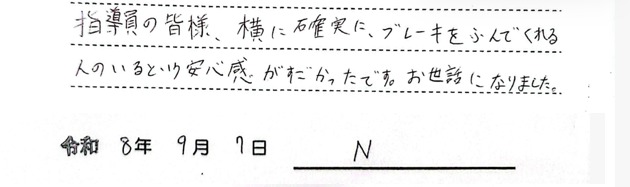 指導員の皆様、横に確実に、ブレーキをふんでくれる
人のいるという安心感がすごかったです。お世話になりました。
令和 8年 9月 7日 N